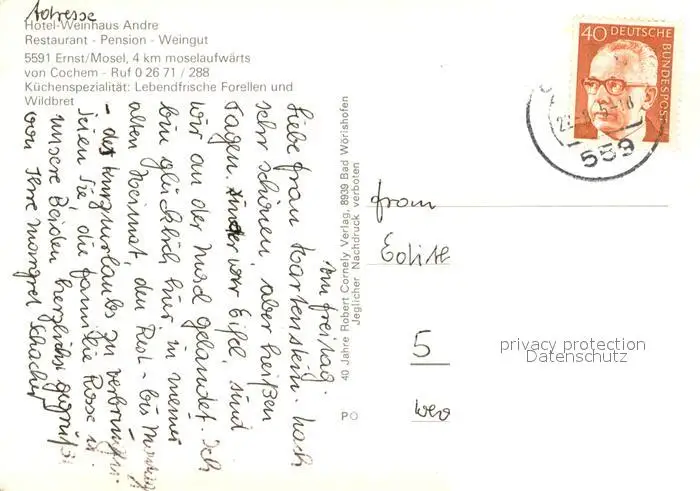 Adresse
Hotel-Weinhaus Andre
Restaurant - Pension - Weingut
5591 Ernst/Mosel, 4 km moselaufwärts
von Cochem - Ruf 0 26 71 / 288
Küchenspezialität: Lebendfrische Forellen und
Wildbret
am Freitag.
Liebe Frau Hartenstein. Nach
sehr schönen, aber heißen
Tagen in der Eifel, sind
wir an der Mosel gelandet. Ich
bin glücklich hier in meiner
alten Heimat, den Rest - bis Montag
- des Kurzurlaubs zu verbringen.
Ihnen Sie, die Familie Rosse u.
unsere Beiden herzlichst gegrüßt
von Ihre Margret Schacher
40 Jahre Robert Cornely Verlag, 8939 Bad Wörishofen
Jeglicher Nachdruck verboten
PO
40 DEUTSCHE
BUNDESPOST
559
Frau
Edith
5
Wer
privacy protection
Datenschutz